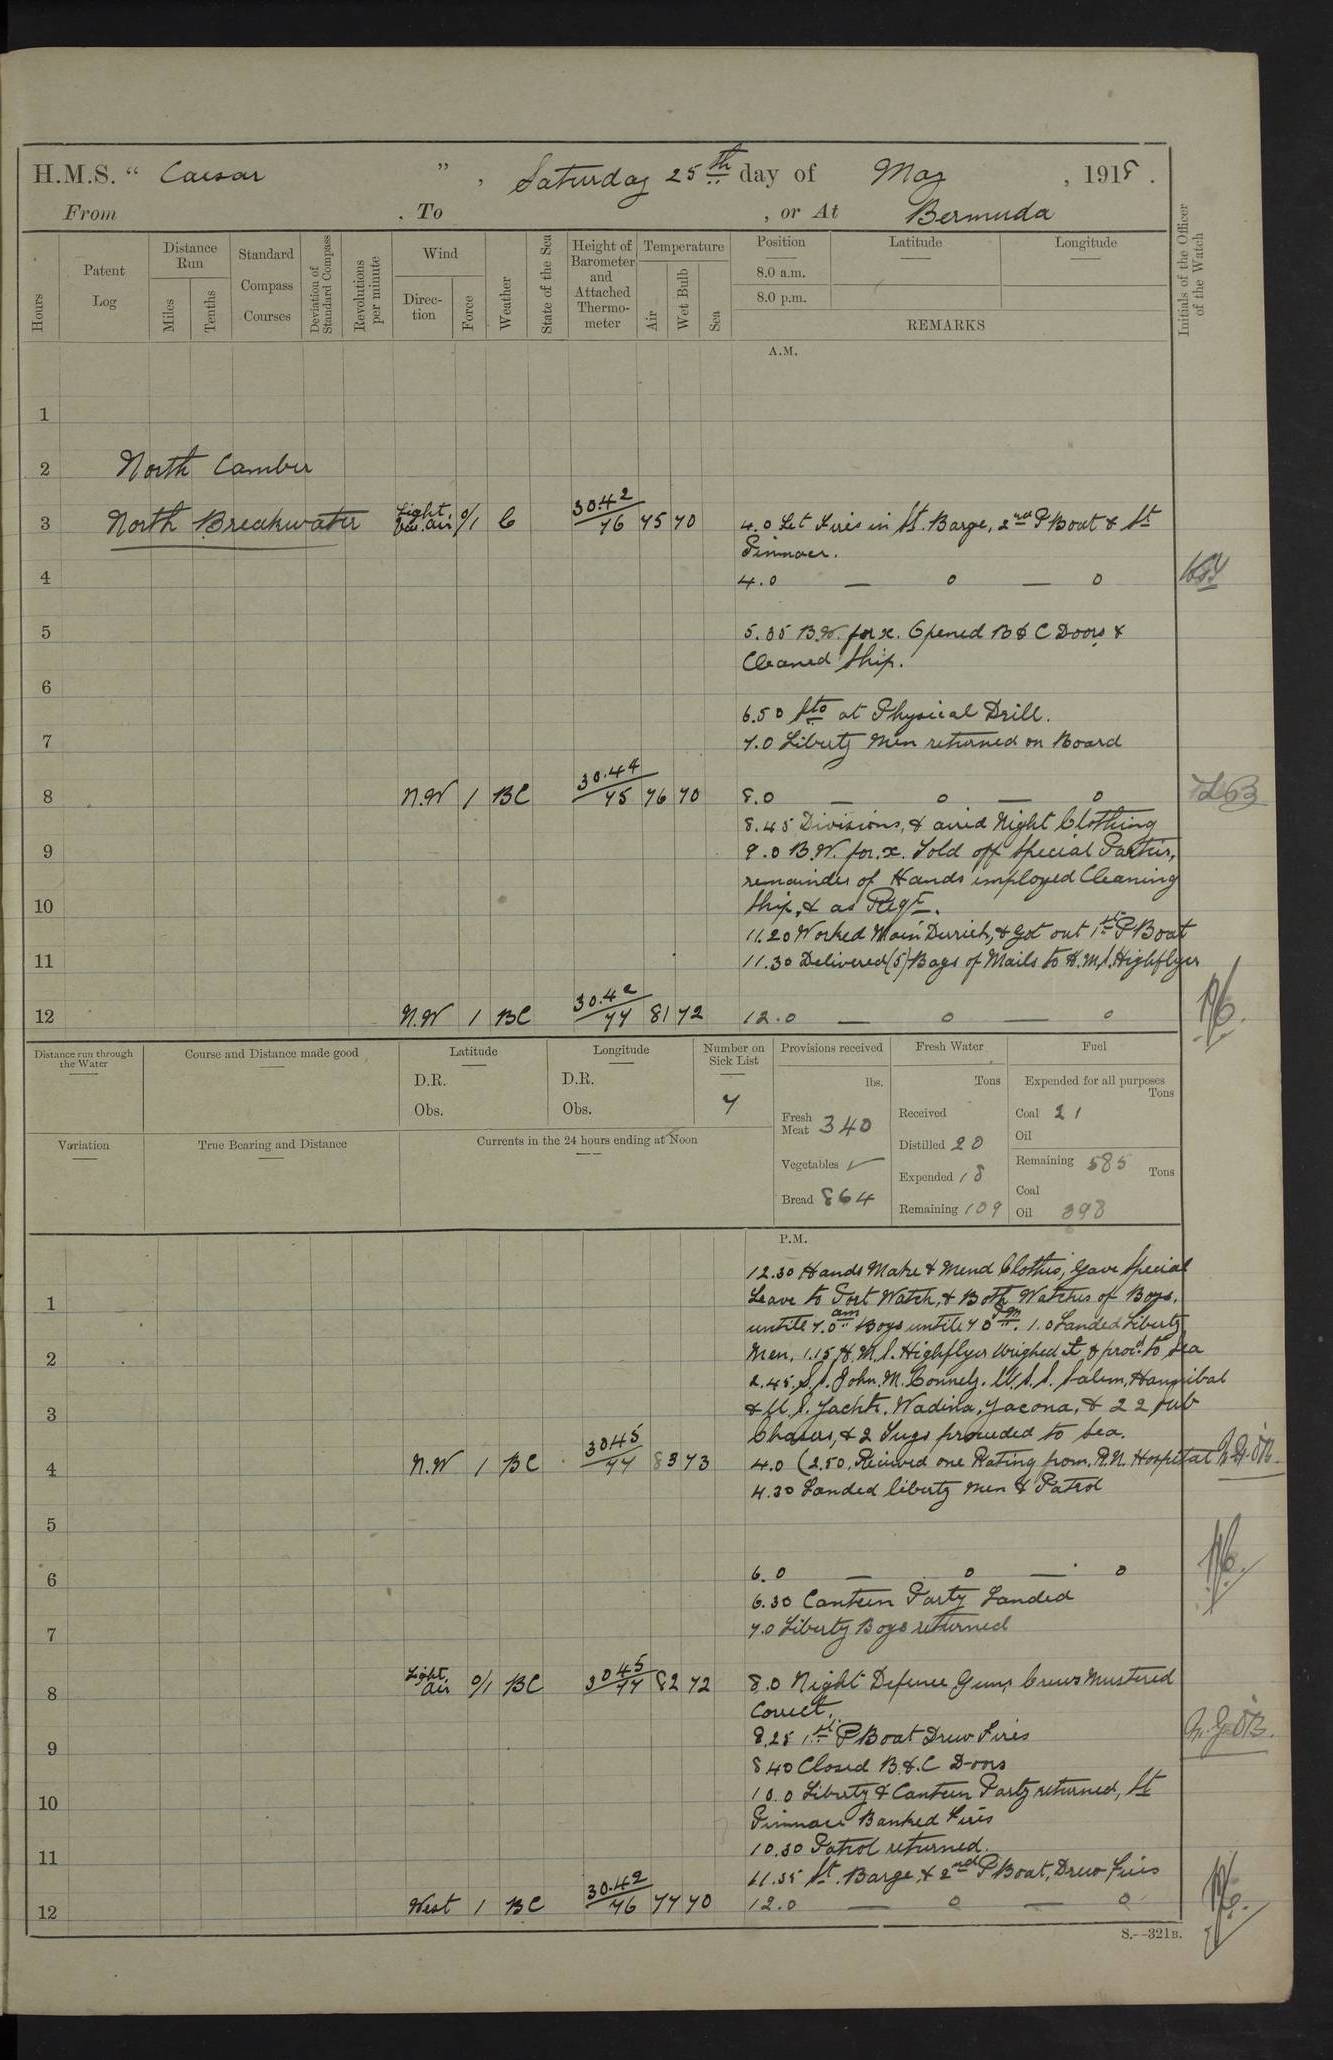 H.M.S. “ Caesar ” , Saturday 25th day of May , 1918 .
From . To , or At Bermuda
Hours
Patent Log
Distance Run
Miles
Tenths
Standard Compass Courses
Deviation of Standard Compass
Revolutions per minute
Wind
Direction
Force
Weather
State of the Sea
Height of Barometer and Attached Thermometer
Temperature
Air
Wet Bulb
Sea
Position
8.0 a.m.
8.0 p.m.
Latitude
Longitude
REMARKS
Initials of the Officer of the Watch
A.M.
1
2 North Camber
3 North Breakwater Light Var. Air 0/1 C 30.42 76 75 70 4.0 Let Fires in St. Barge, 2nd P Boat & St
Pinnace.
4 4.0 — 0 — 0
5 5.35 B.W. for x. Opened B & C Doors &
Cleaned Ship.
6
6.50 Sto at Physical Drill.
7 7.0 Liberty Men returned on Board
8 N.W 1 BC 30.44 75 76 70 8.0 — 0 — 0
8.45 Divisions, & aired Night Clothing
9 9.0 B.W. for x. Told off Special Parties,
remainder of Hands employed Cleaning
10 Ship, & as Reqt.
11.20 Worked Main Derrick, & Got out 1st P Boat
11 11.30 Delivered (5) Bags of Mails to H.M.S. Highflyer
12 N.W 1 BC 30.42 77 81 72 12.0 — 0 — 0
Distance run through the Water
Course and Distance made good
Latitude
D.R.
Obs.
Longitude
D.R.
Obs.
Number on Sick List
7
Provisions received
lbs.
Fresh Meat 340
Vegetables ✓
Bread 864
Fresh Water
Tons
Received
Distilled 20
Expended 18
Remaining 109
Fuel
Expended for all purposes
Tons
Coal 21
Oil
Remaining 585 Tons
Coal
Oil 398
Variation
True Bearing and Distance
Currents in the 24 hours ending at Noon
P.M.
12.30 Hands Make & Mend Clothes, Gave Special
1 Leave to Port Watch, & Both Watches of Boys,
untile 7.0 am Boys untile 7 0 pm. 1.0 Landed Liberty
2 Men. 1.15 H.M.S. Highflyer Weighed & procd. to Sea
2.45. S.S. John. M. Connely. U.S.S. Salem, Hannibal
3 & U.S. Yachts. Wadina, Yacona, & 22 Sub
Chasers, & 2 Tugs proceeded to Sea.
4 N.W 1 BC 3045 77 83 73 4.0 (2.50. Received one Rating from. R.N. Hospital
4.30 Landed liberty men & Patrol
5
6 6.0 — 0 — 0
6.30 Canteen Party Landed
7 7.0 Liberty Boys returned
8 Light Air 0/1 BC 3045 77 82 72 8.0 Night Defence Guns Crews Mustered
Correct.
9 8.25 1st P Boat Drew Fires
8 40 Closed B. & C Doors
10 10.0 Liberty & Canteen Party returned, St
Pinnace Banked Fires
11 10.30 Patrol returned.
11.35 St. Barge, & 2nd P Boat, Drew Fires
12 West 1 BC 30.42 76 77 70 12.0 — 0 — 0
S.—321B.